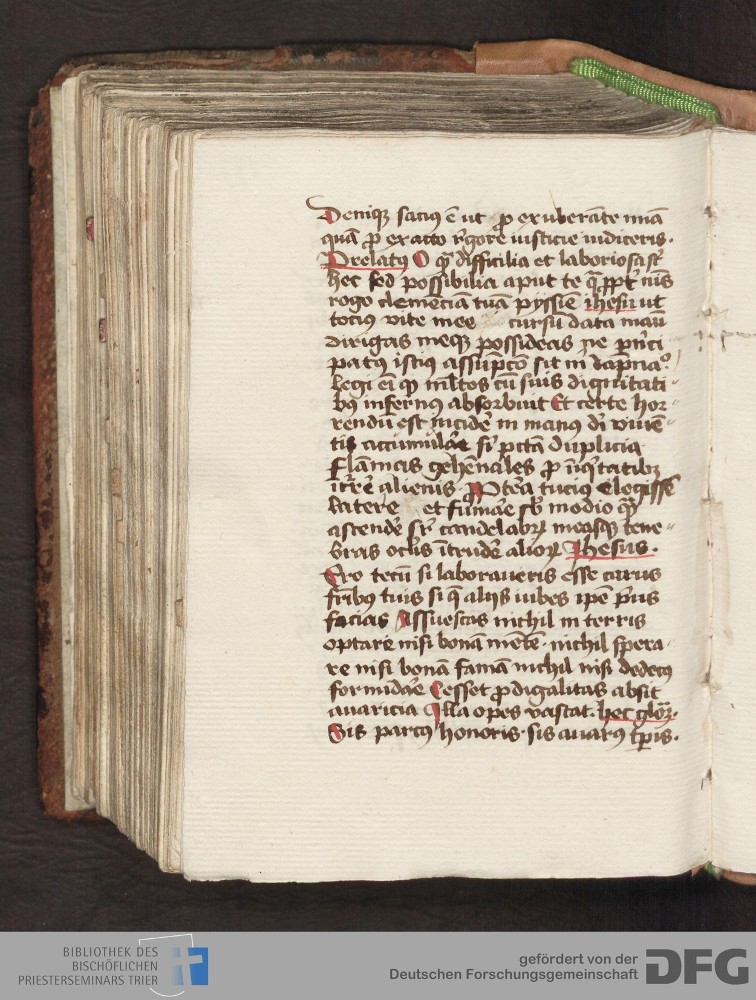 Deniqꝫ saciꝰ ē ut ꝓ exuberāte
quā ꝓ exacto rigore iusticie iudiceris.
Prelatꝰ O q̄ difficilia et laboriosa st̄
hec sed possibilia aput te
rogo clemēciā tuā pyssīe ihesu ut
tociꝰ vite mee cursū data manu
dirigas meqꝫ possideas ne prīci
patꝰ istiꝰ assūpcō sit m̄ dāpnaᵒ
legi em̄ ꝙ mltos cū suis dignitati
bꝰ infernꝰ absorbuit Et certe hor
rendū est incidē in manꝰ di viuē
tis accumulāe sꝑ pctā duplicia
flāmas gehēnales ꝓ
alienis. tuciꝰ elegisse
latere et fumāe sb modio qꝫ
ascendē sꝑ candelabrꝫ measqꝫ tene
bras oclis ītrudē alioꝝ Jhesus.
Ero tecū si laboraueris esse carus
frībꝰ tuis si q̄ aliis iubes ipē priꝰ
facias Assuescas nichil in terris
optare nisi bonā mētē. nichil spera
re nisi bonā famā nichil nisi dedecꝰ
formidāe Cesset ꝓdigalitas absit
auaricia Illa opes vastat. hec gloꝝ.
Sis parcꝰ honoris. sis auarꝰ tꝑis.
BIBLIOTHEK DES
BISCHÖFLICHEN
PRIESTERSEMINARS TRIER
gefördert von der
Deutschen Forschungsgemeinschaft
DFG